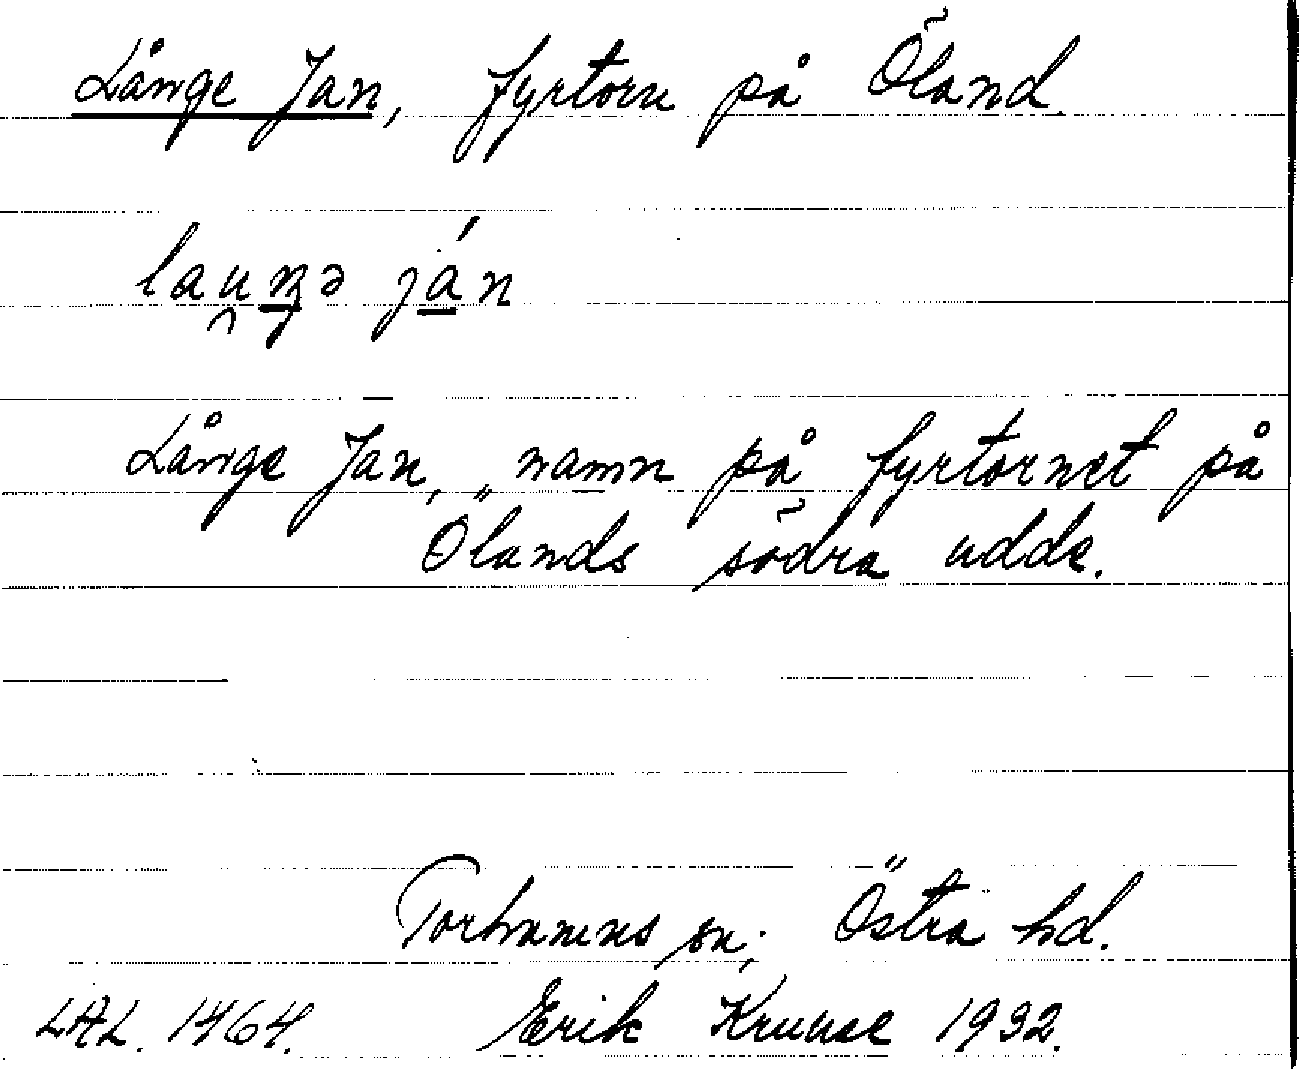 Långe Jan, fyrtorn på Öland.
Långe Jan, namn på fyrtornet på
Ölands södra udde.
Torhamns sn; Östra hd.
LAL. 1464. Erik Kruuse 1932.